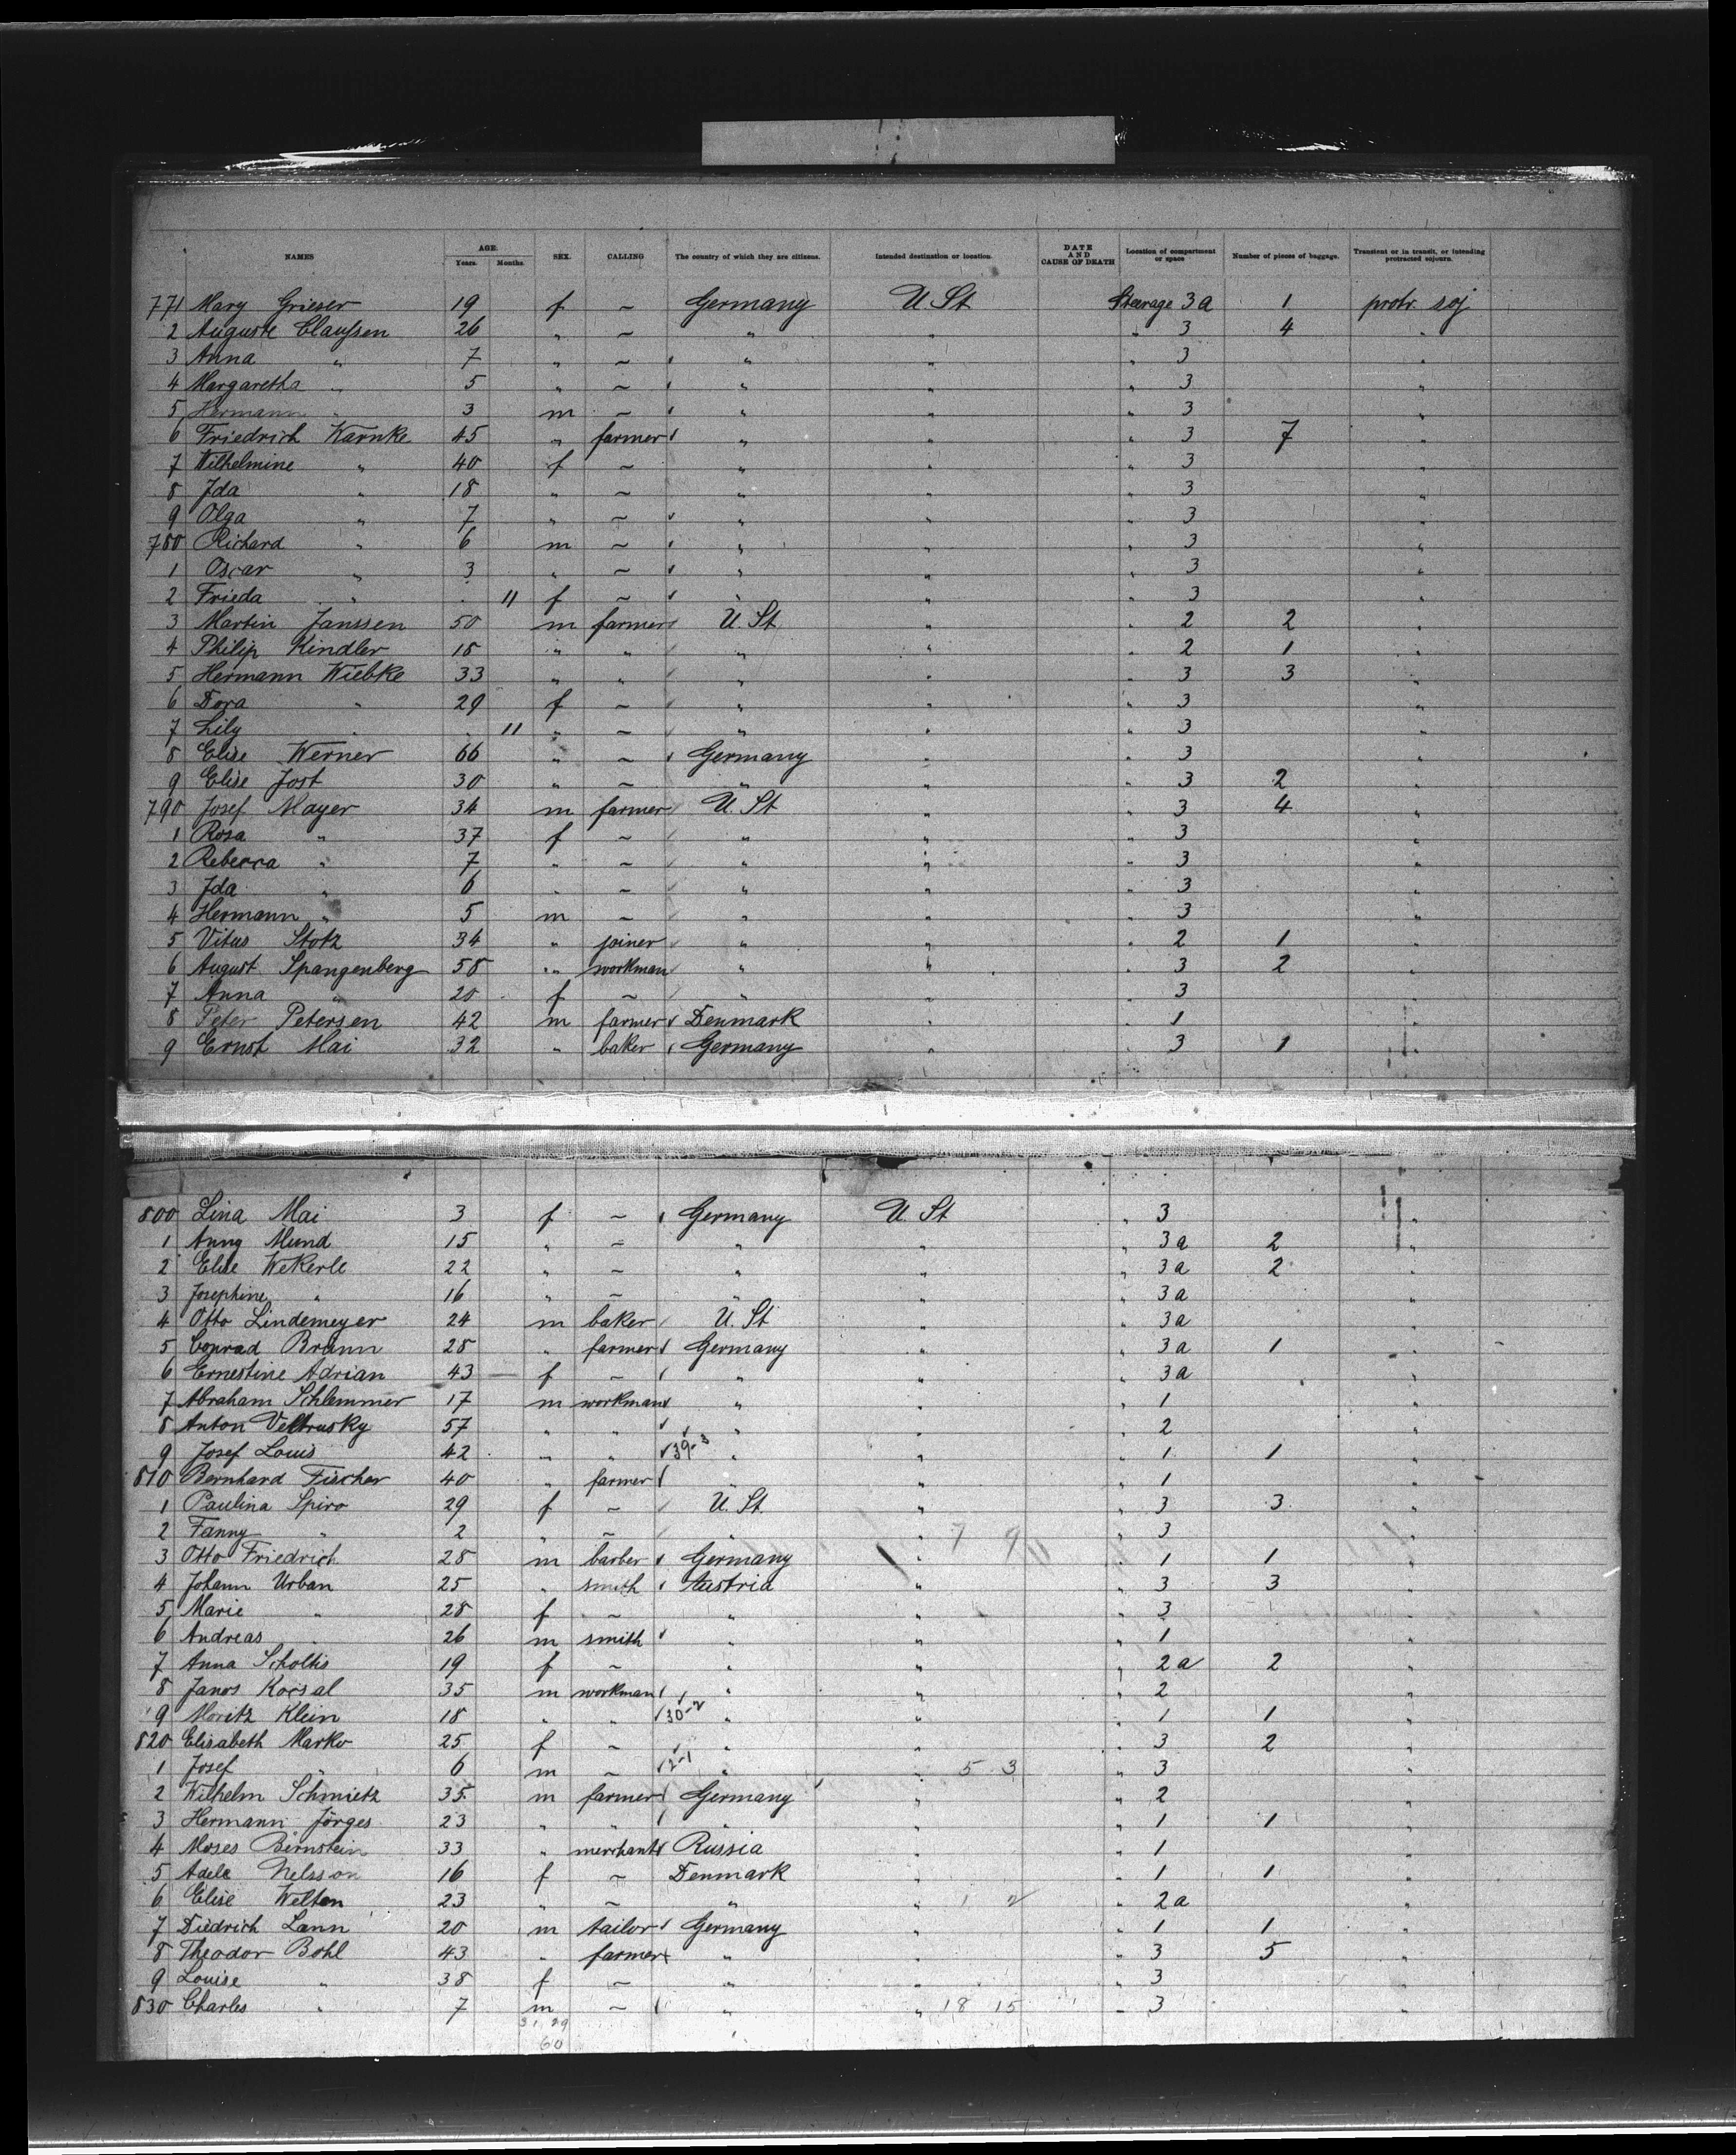 NAMES AGE. Years. Months. SEX. CALLING The country of which they are citizens. Intended destination or location. DATE AND CAUSE OF DEATH Location of compartment or space Number of pieces of baggage. Transient or in transit, or intending protracted sojourn.
771 Mary Grieser 19 f ~ Germany U. St Steerage 3a 1 protr. soj
2 Auguste Claussen 26 " ~ " " " 3 4 "
3 Anna " 7 " ~ " " " 3 "
4 Margaretha " 5 " ~ " " " 3 "
5 Hermann " 3 m ~ " " " 3 "
6 Friedrich Karnke 45 " farmer " " " 3 7 "
7 Wilhelmine " 40 f ~ " " " 3 "
8 Ida " 18 " ~ " " " 3 "
9 Olga " 7 " ~ " " " 3 "
780 Richard " 6 m ~ " " " 3 "
1 Oscar " 3 " ~ " " " 3 "
2 Frieda " 11 f ~ " " " 3 "
3 Martin Janssen 50 m farmer U. St " " 2 2 "
4 Philip Kindler 18 " " " " " 2 1 "
5 Hermann Wiebke 33 " " " " " 3 3 "
6 Dora " 29 f ~ " " " 3 "
7 Lily " 11 " ~ " " " 3 "
8 Elise Werner 66 " ~ Germany " " 3 "
9 Elise Jost 30 " ~ " " " 3 2 "
790 Josef Mayer 34 m farmer U. St " " 3 4 "
1 Rosa " 37 f ~ " " " 3 "
2 Rebecca " 7 " ~ " " " 3 "
3 Ida " 6 " ~ " " " 3 "
4 Hermann " 5 m ~ " " " 3 "
5 Vitus Stotz 34 " joiner " " " 2 1 "
6 August Spangenberg 58 " workman " " " 3 2 "
7 Anna " 20 f ~ " " " 3 "
8 Peter Petersen 42 m farmer Denmark " " 1 "
9 Ernst Mai 32 " baker Germany " " 3 1 "
800 Lina Mai 3 f ~ Germany U. St " 3 "
1 Anny Mund 15 " ~ " " " 3a 2 "
2 Elise Wekerle 22 " ~ " " " 3a 2 "
3 Josephine " 16 " ~ " " " 3a "
4 Otto Lindemeyer 24 m baker U. St " " 3a "
5 Conrad Brunn 28 " farmer Germany " " 3a 1 "
6 Ernestine Adrian 43 f ~ " " " 3a "
7 Abraham Schlemmer 17 m workman " " " 1 "
8 Anton Veltrusky 57 " " " " " 2 "
9 Josef Louis 42 " " 39-3 " " " 1 1 "
810 Bernhard Fischer 40 " farmer " " " 1 "
1 Paulina Spiro 29 f ~ U. St. " " 3 3 "
2 Fanny " 2 " ~ " " 7 9 " 3 "
3 Otto Friedrich 28 m barber Germany " " 1 1 "
4 Johann Urban 25 " smith Austria " " 3 3 "
5 Marie " 28 f ~ " " " 3 "
6 Andreas " 26 m smith " " " 1 "
7 Anna Scholtis 19 f ~ " " " 2a 2 "
8 Janos Korsal 35 m workman " " " 2 "
9 Moritz Klein 18 " " 30-2 " " " 1 1 "
820 Elisabeth Marko 25 f ~ " " " 3 2 "
1 Josef " 6 m ~ 2-1 " " 5 3 " 3 "
2 Wilhelm Schmietz 35 m farmer Germany " " 2 "
3 Hermann Jörges 23 " " " " " 1 1 "
4 Moses Bernstein 33 " merchant Russia " " 1 "
5 Adele Nelsson 16 f ~ Denmark " " 1 1 "
6 Elise Welten 23 " ~ " " 1 2 " 2a "
7 Diedrich Lann 20 m tailor Germany " " 1 1 "
8 Theodor Bohl 43 " farmer " " " 3 5 "
9 Louise " 38 f ~ " " " 3 "
830 Charles " 7 m ~ " " 18 15 " 3 "
31 29
60